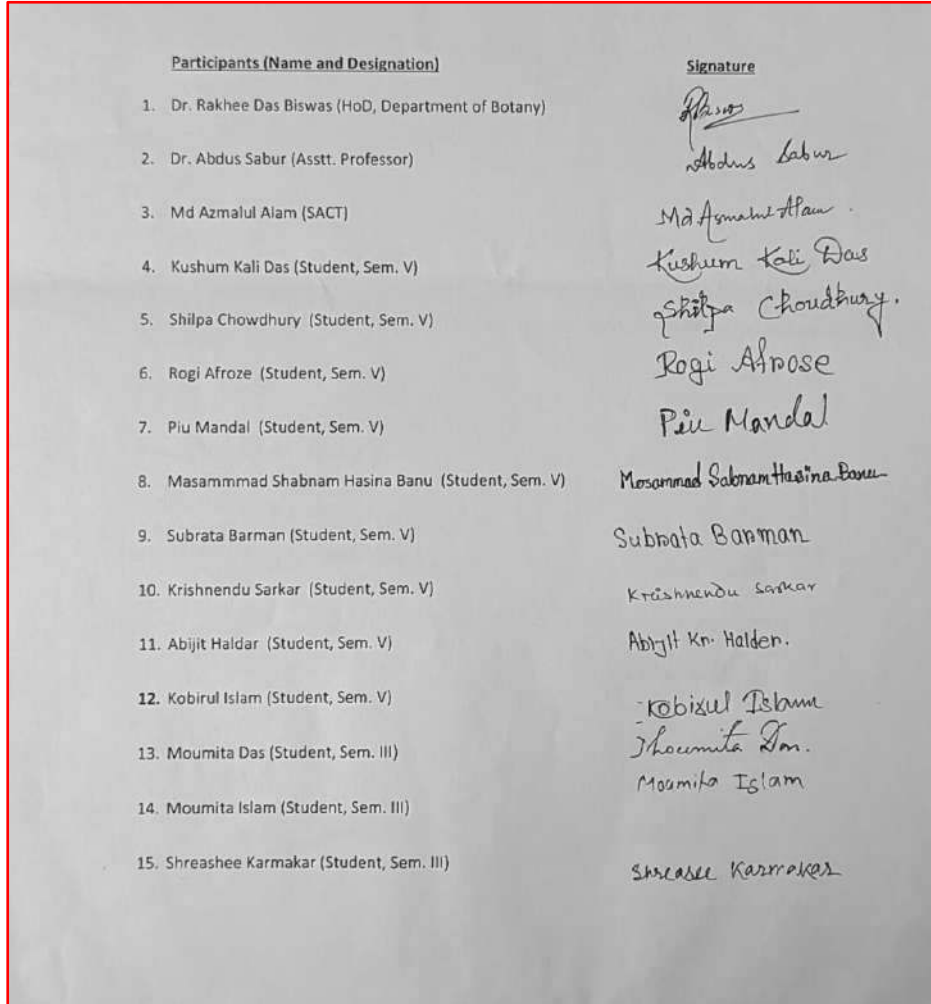 Participants (Name and Designation) Signature
1. Dr. Rakhee Das Biswas (HoD, Department of Botany)
2. Dr. Abdus Sabur (Asstt. Professor) Abdus Sabur
3. Md Azmalul Alam (SACT) Md Azmalul Alam.
4. Kushum Kali Das (Student, Sem. V) Kushum Kali Das
5. Shilpa Chowdhury (Student, Sem. V) Shilpa Choudhury.
6. Rogi Afroze (Student, Sem. V) Rogi Afrose
7. Piu Mandal (Student, Sem. V) Piu Mandal
8. Masammmad Shabnam Hasina Banu (Student, Sem. V) Mosammad Sabnam Hasina Banu
9. Subrata Barman (Student, Sem. V) Subrata Barman
10. Krishnendu Sarkar (Student, Sem. V) Krishnendu Sarkar
11. Abijit Haldar (Student, Sem. V) Abijit Kr. Halder.
12. Kobirul Islam (Student, Sem. V) Kobirul Islam
13. Moumita Das (Student, Sem. III) Moumita Das.
14. Moumita Islam (Student, Sem. III) Moumita Islam
15. Shreashee Karmakar (Student, Sem. III) Shreasee Karmakar